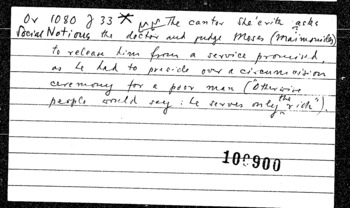 Or 1080 J 33 * The cantor She'erith asks
Social Notions the doctor and judge Moses (Maimonides)
to release him from a service promised,
as he had to preside over a circumcision
ceremony for a poor man ("Otherwise
people would say: he serves only the rich").
100900